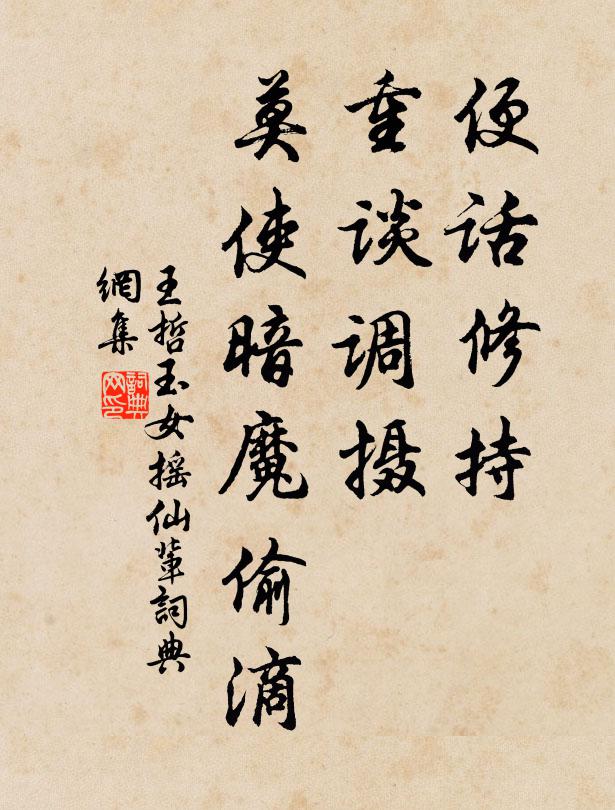 便话修持
重谈调摄
莫使暗魔偷滴
王哲玉女摇仙辈詞典
網集
詞典网印